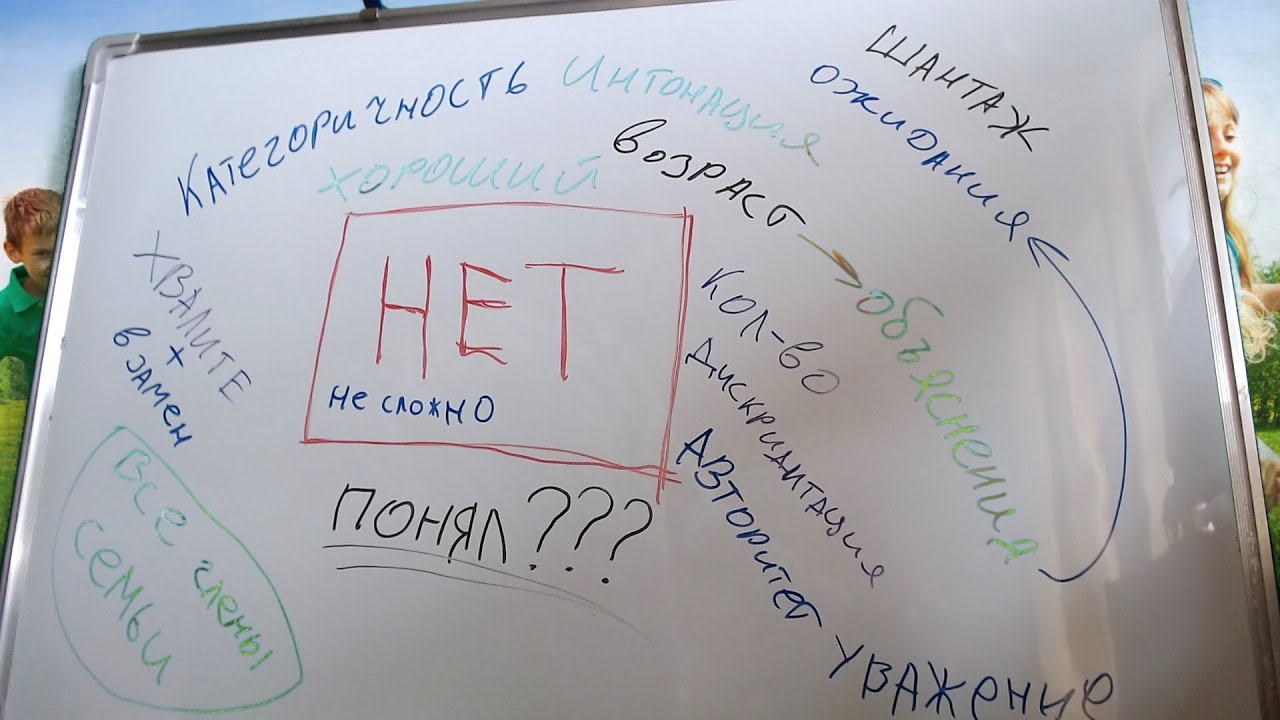 ШАНТАЖ
ОЖИДАНИЯ
КАТЕГОРИЧНОСТЬ
ИНТОНАЦИЯ
ХОРОШИЙ
ВОЗРАСТ
объяснения
НЕТ
не сложно
ХВАЛИТЕ
+
взамен
КОЛ-ВО
ДИСКРИДИТАЦИЯ
АВТОРИТЕТ
УВАЖЕНИЕ
ПОНЯЛ???
ВСЕ члены
СЕМЬИ